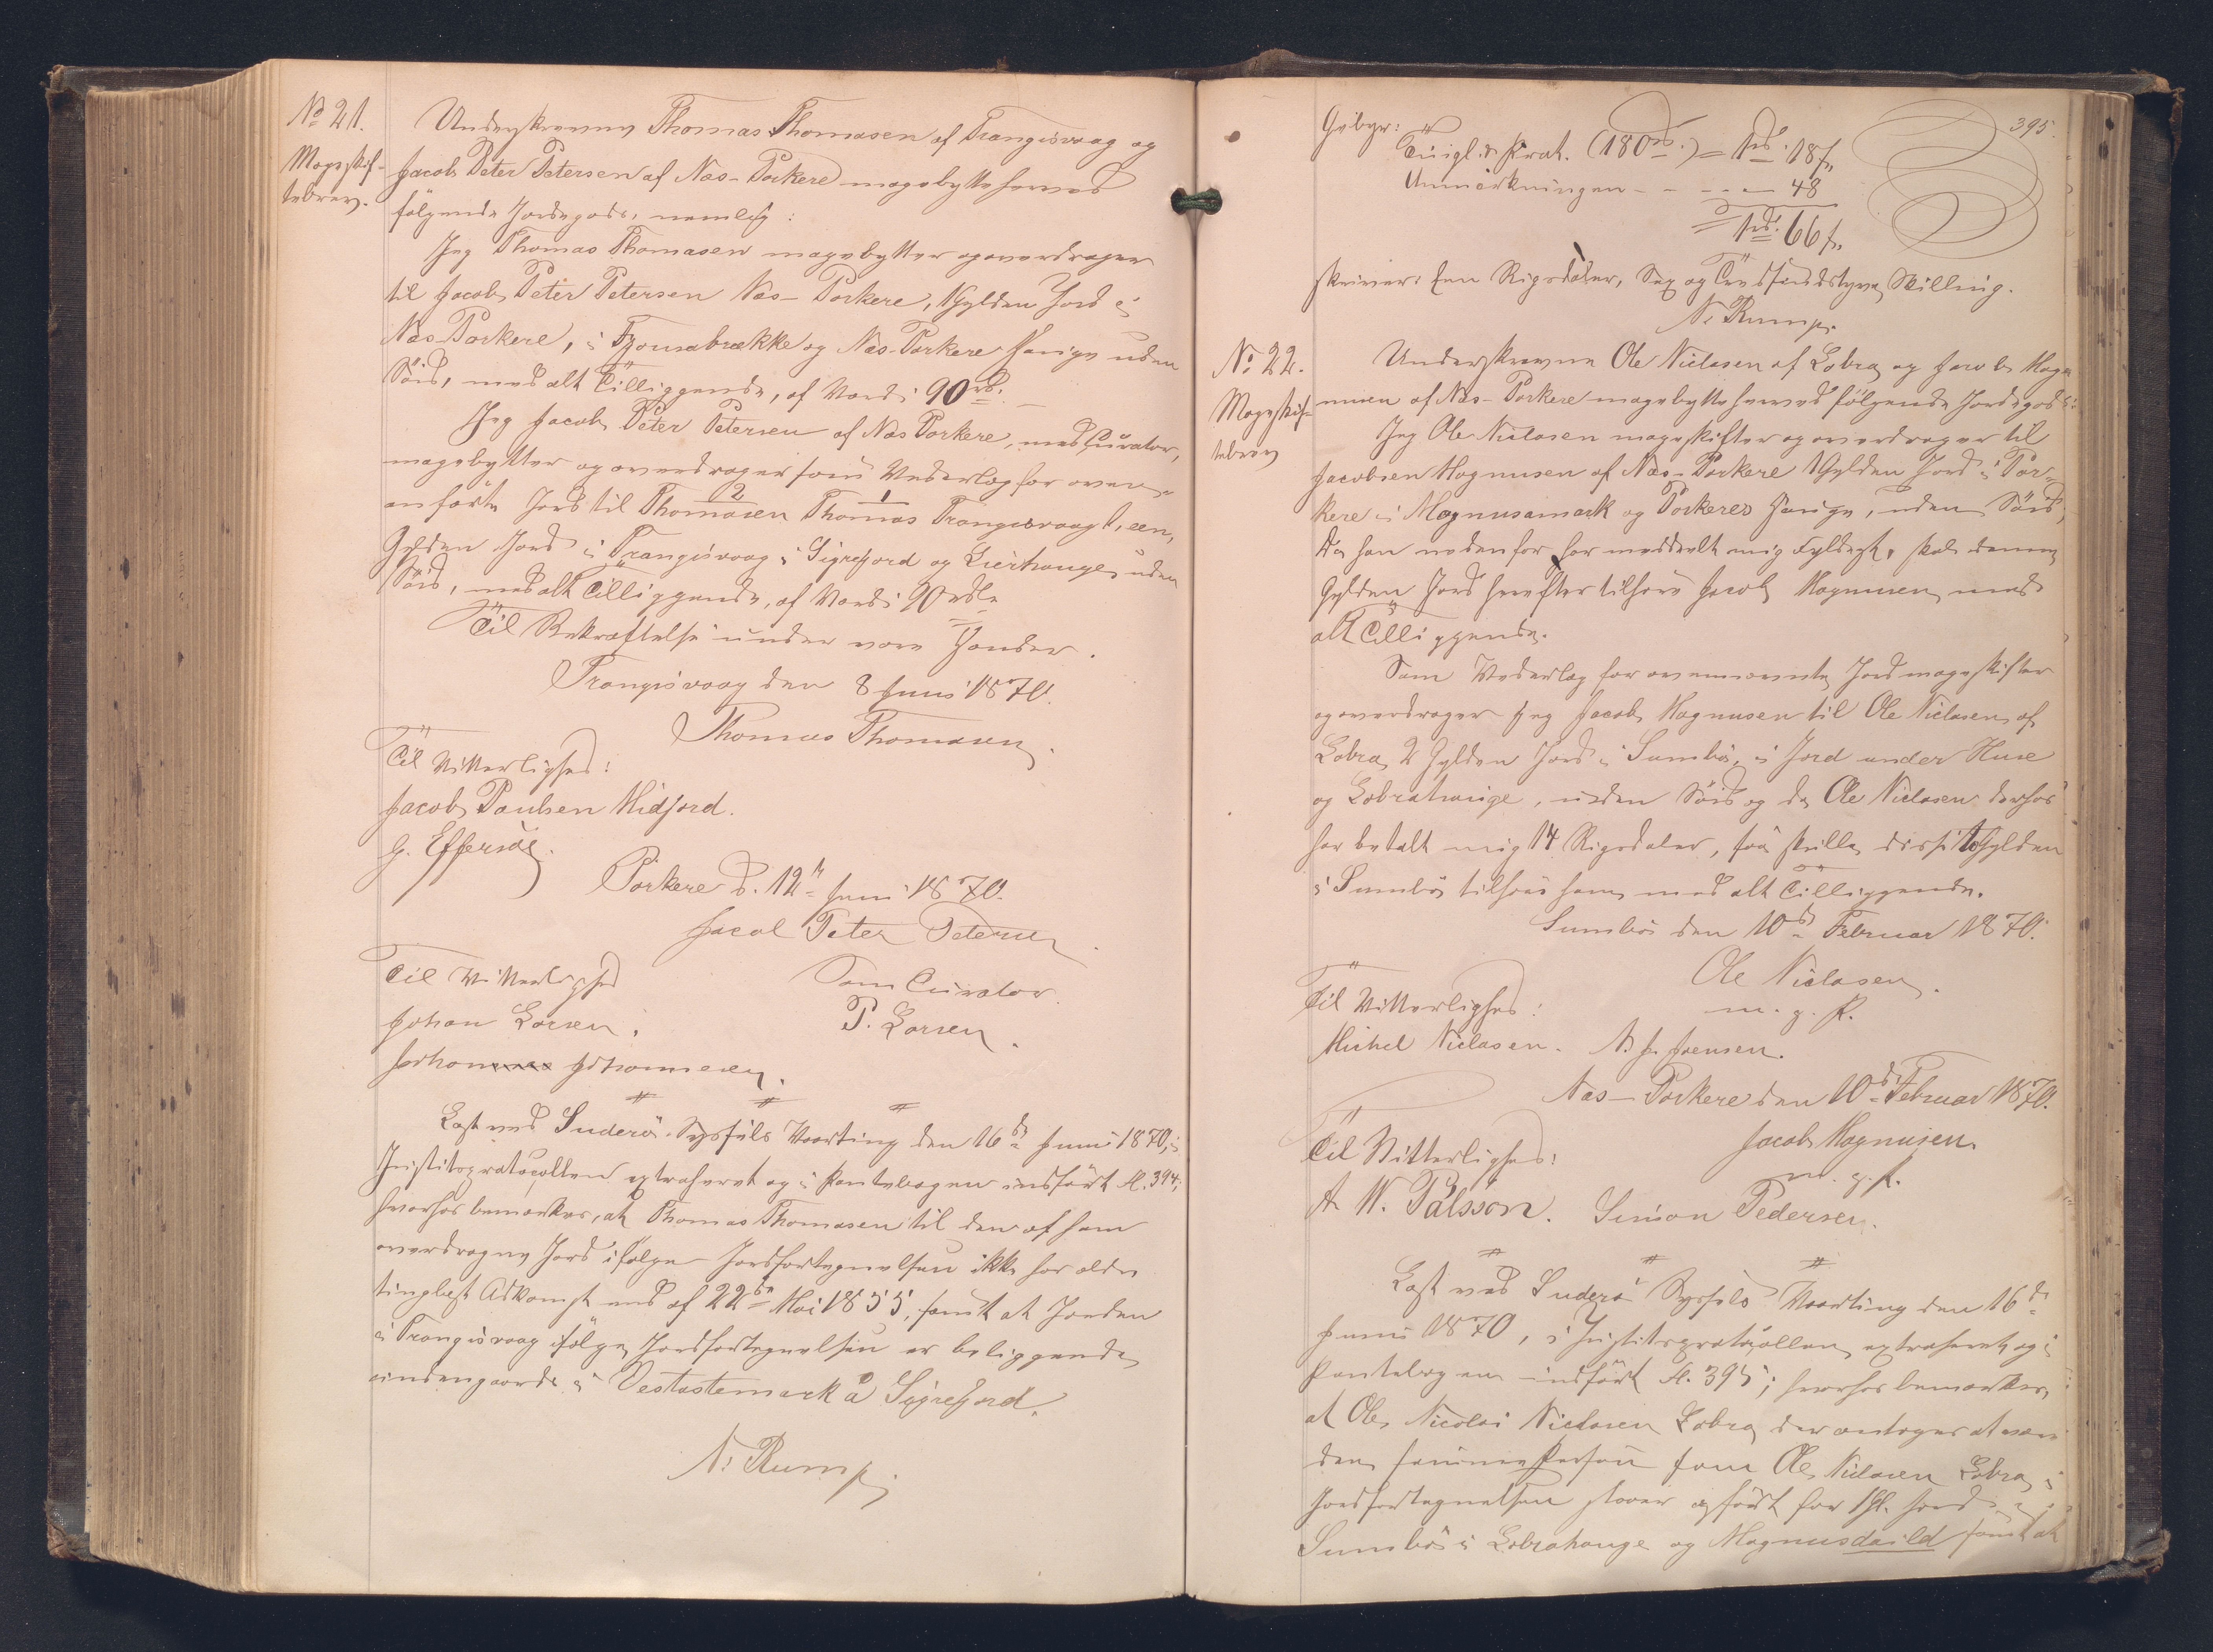 No 21.
Mageskif-
tebrev.
Underskrevne Thomas Thomasen af Trangisvaag og
Jacob Peter Petersen af Næs-Porkere magebytte herved
følgende Jordegods, nemlig:
Jeg Thomas Thomasen magebytter og overdrager
til Jacob Peter Petersen Næs-Porkere, 1 Gylden Jord i
Næs-Porkere, i og Næs-Porkere Hauge uden
Söid, med alt Tilliggende, af Værdi 90 rd.
Jeg Jacob Peter Petersen af Næs Porkere, med Curator,
magebytter og overdrager som Vederlag for oven-
anførte Jord til Thomasen Thomas Trangisvaag 1, een,
Gylden Jord i Trangisvaag i Sigrefjord og uden
Söid, med alt Tilliggende, af Værdi 90 rdlr.
Til Bekræftelse under vore Hænder.
Trangisvaag den 8 Juni 1870.
Thomas Thomasen.
Til Vitterlighed:
Jacob Paulsen Midfjord.
G. Effersöe.
Porkere d. 12te Juni 1870.
Jacob Peter Petersen
Til Vitterlighed
Som Curator.
Johan Larsen.
P. Larsen.
Johannesen.
Læst ved Suderö Syssels Vaarting den 16de Juni 1870, i
Justitsprotocollen extraheret og i Pantebogen indført fl. 394;
hvorhos bemærkes, at Thomas Thomasen til den af ham
overdragne Jord ifølge Jordfortegnelsen ikke har ældre
tinglæst Adkomst end af 22de Mai 1855, samt at Jorden
i Trangisvaag ifølge Jordfortegnelsen er beliggende
indengaards i Vestastemark å Sigrefjord.
N. Rump.
395.
Gebyr:
Tingl. & Prot. (180 rd.) = 1 rd. 18 s.
Anmærkningen - - - - 48
= 1 rd. 66 s.
skriver: Een Rigsdaler, Sex og Tredsindstyve Skilling.
N. Rump.
No 22.
Mageskif-
tebrev
Underskrevne Ole Niclasen af Lobra og Jacob Mag-
nusen af Næs-Porkere magebytte herved følgende Jordegods:
Jeg Ole Niclasen mageskifter og overdrager til
Jacobsen Magnusen af Næs-Porkere 1 Gylden Jord i Por-
kere i Magnusamark og Porkeres Hauge, uden Söid,
da han nedenfor har meddelt mig Fyldest, skal denne
Gylden Jord herefter tilhøre Jacob Magnusen med
alt Tilliggende.
Som Vederlag for ovennævnte Jord mageskifter
og overdrager jeg Jacob Magnusen til Ole Niclasen af
Lobra 2 Gylden Jord i Sumbö, i Jord under Huse
og Lobrahauge, uden Söid og da Ole Niclasen derhos
har betalt mig 14 Rigsdaler, saa skulle disse to Gylden
i Sumbö tilhøre ham med alt Tilliggende.
Sumbö den 10de Februar 1870.
Ole Niclasen.
m. g. P.
Til Vitterlighed:
Michel Niclasen. J. Joensen.
Næs-Porkere den 10de Februar 1870.
Jacob Magnusen
m. g. P.
Til Vitterlighed:
A. W. Pálsson. Simon Pedersen.
Læst ved Suderö Syssels Vaarting den 16de
Junii 1870, i Justitsprotocollen extraheret og i
Pantebogen indført fl. 395; hvorhos bemærkes,
at Ole Nicolai Niclasen Lobra, der antages at være
den samme Person som Ole Niclasen Lobra, i
Jordfortegnelsen staaer opført for 1 Gl. Jord i
Sumbö i Lobrahauge og Magnusdaild samt at